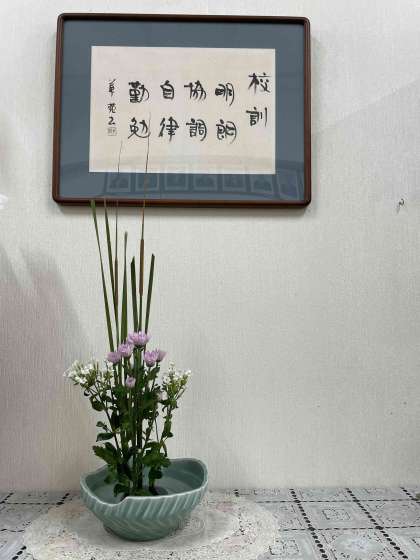 校訓
明朗
協調
自律
勤勉